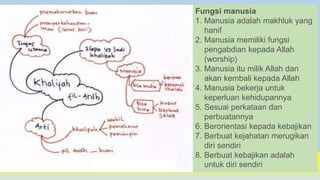 memakmurkan bumi
memperta
han (sesuai
Tugas
utama
Siapa yg Jadi
khalipah
Manusia
beriman
beramal
shaleh
kufur
berbuat
salah
Khalipah
fil-Ardh
Arti
Khalipah
wakil
pemakmur
pemimpin
fil ardh = bumi
Fungsi manusia
1. Manusia adalah makhluk yang
hanif
2. Manusia memiliki fungsi
pengabdian kepada Allah
(worship)
3. Manusia itu milik Allah dan
akan kembali kepada Allah
4. Manusia bekerja untuk
keperluan kehidupannya
5. Sesuai perkataan dan
perbuatannya
6. Berorientasi kepada kebajikan
7. Berbuat kejahatan merugikan
diri sendiri
8. Berbuat kebajikan adalah
untuk diri sendiri